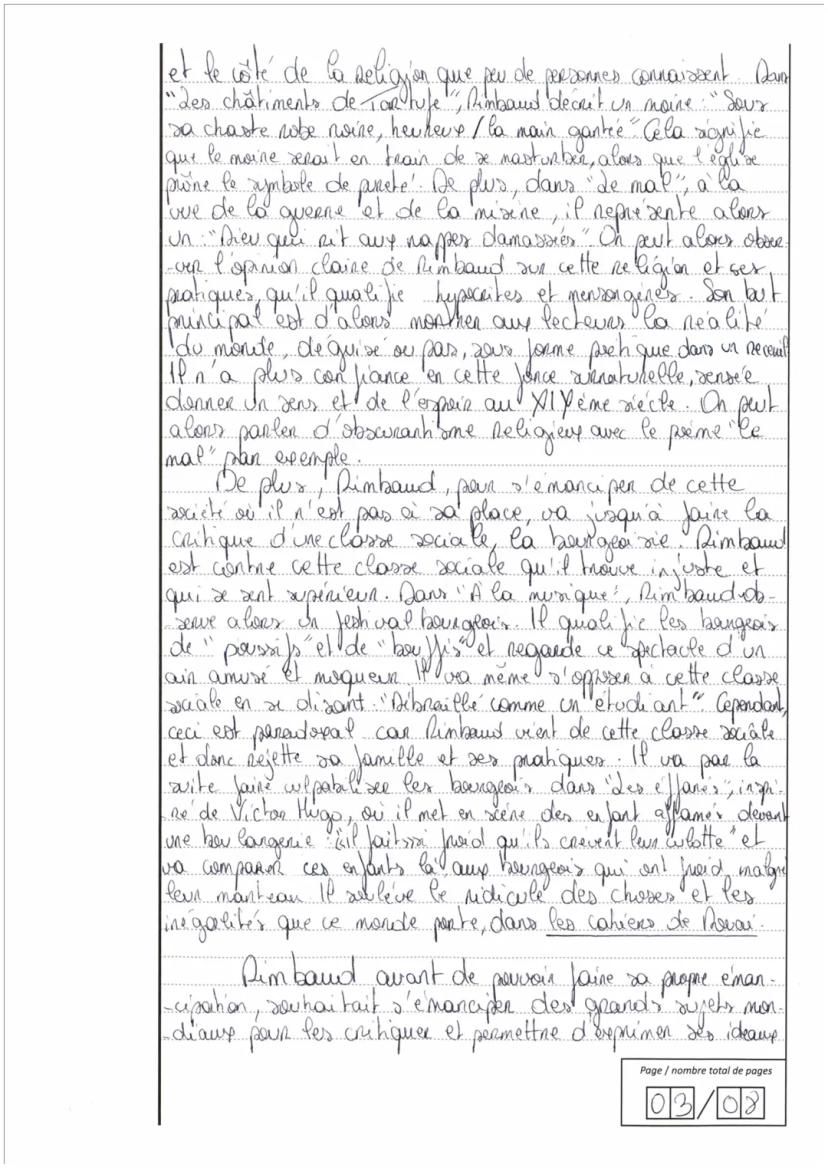 et le côté de la religion que peu de personnes connaissent. Dans
"Les châtiments de Tartufe", Rimbaud décrit un moine : "Sous
sa chaste robe noire, heureux / la main gantée" Cela signifie
que le moine serait en train de se masturber, alors que l'église
prône le symbole de pureté. De plus, dans "Le mal", à la
vue de la guerre et de la misère, il représente alors
un : "Dieu qui rit aux nappes damassées". On peut alors obser-
-ver l'opinion claire de Rimbaud sur cette religion et ses
pratiques, qu'il qualifie hypocrites et mensongères. Son but
principal est d'alors montrer aux lecteurs la réalité
du monde, déguisé ou pas, sous forme poétique dans un receuil
Il n'a plus confiance en cette force surnaturelle, sensée
donner un sens et de l'espoir au XIXème siécle. On peut
alors parler d'obscurantisme religieux avec le poème "le
mal" par exemple.
De plus, Rimbaud, pour s'émanciper de cette
société où il n'est pas à sa place, va jusqu'à faire la
critique d'une classe sociale, la bourgeoisie. Rimbaud
est contre cette classe sociale qu'il trouve injuste et
qui se sent supérieur. Dans "À la musique", Rimbaud ob-
-serve alors un festival bourgeois. Il qualifie les bourgeois
de "poussifs" et de "bouffis" et regarde ce spectacle d'un
air amusé et moqueur. Il va même s'opposer à cette classe
sociale en se disant : "Débraillé comme un étudiant" Cependant,
ceci est paradoxal car Rimbaud vient de cette classe sociale
et donc rejette sa famille et ses pratiques. Il va par la
suite faire culpabiliser les bourgeois dans "Les éffarés", inspi-
-ré de Victor Hugo, où il met en scène des enfant affamés devant
une boulangerie : "il fait si froid qu'ils crèvent leur culotte" et
va comparer ces enfants là aux bourgeois qui ont froid malgré
leur manteau. Il soulève le ridicule des choses et les
inégalités que ce monde porte, dans les cahiers de Douai.
Rimbaud avant de pouvoir faire sa propre éman-
-cipation, souhaitait s'émanciper des grands sujets mon-
-diaux pour les critiquer et permettre d'exprimer ses idéaux
Page / nombre total de pages
03/08